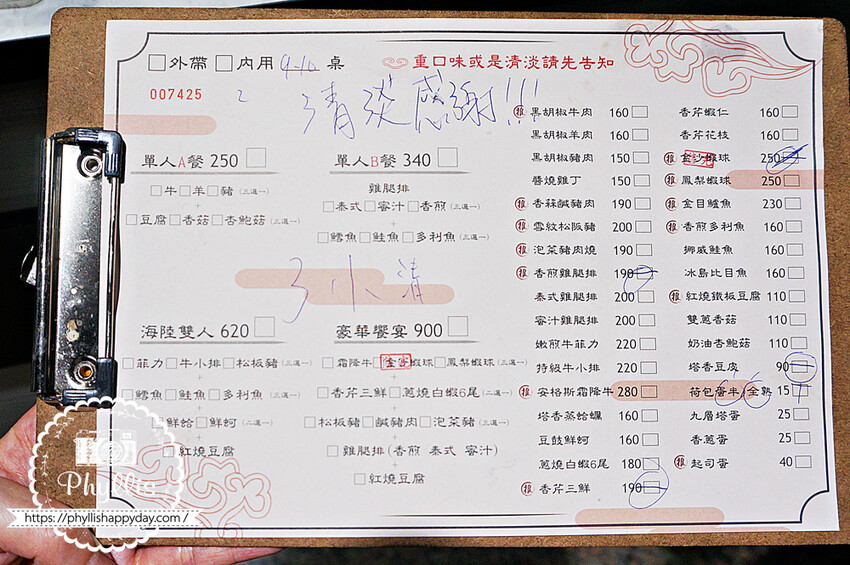 □外帶 □內用 9-10 桌
重口味或是清淡請先告知
007425
2
清淡感謝!!!
單人A餐 250 □
□牛□羊□豬(三選一)
+
□豆腐□香菇□杏鮑菇(三選一)
單人B餐 340 □
雞腿排
□泰式□蜜汁□香煎(三選一)
+
□鱈魚□鮭魚□多利魚(三選一)
3小清
海陸雙人 620 □
□菲力□牛小排□松板豬(三選一)
+
□鱈魚□鮭魚□多利魚(三選一)
+
□鮮蛤□鮮蚵(二選一)
+
□紅燒豆腐
豪華饗宴 900 □
□霜降牛□金沙蝦球□鳳梨蝦球(三選一)
+
□香芹三鮮□蔥燒白蝦6尾(二選一)
+
□松板豬□鹹豬肉□泡菜豬(三選一)
+
□雞腿排(香煎 泰式 蜜汁)
+
□紅燒豆腐
推 黑胡椒牛肉 160 □
黑胡椒羊肉 160 □
黑胡椒豬肉 150 □
醬燒雞丁 150 □
推 香蒜鹹豬肉 190 □
推 雪紋松阪豬 200 □
推 泡菜豬肉燒 190 □
推 香煎雞腿排 190 □
泰式雞腿排 200 □
蜜汁雞腿排 200 □
嫩煎牛菲力 220 □
特級牛小排 220 □
推 安格斯霜降牛 280 □
塔香蒸蛤蠣 160 □
豆鼓鮮蚵 160 □
蔥燒白蝦6尾 180 □
推 香芹三鮮 190 □
香芹蝦仁 160 □
香芹花枝 160 □
推 金沙蝦球 250 □
推 鳳梨蝦球 250 □
推 金目鱸魚 230 □
推 香煎多利魚 160 □
挪威鮭魚 160 □
冰島比目魚 160 □
推 紅燒鐵板豆腐 110 □
雙蔥香菇 110 □
奶油杏鮑菇 110 □
塔香豆皮 90 □
荷包蛋半/全熟 15 □
九層塔蛋 25 □
香蔥蛋 25 □
推 起司蛋 40 □
Phyllis
https://phyllishappyday.com/